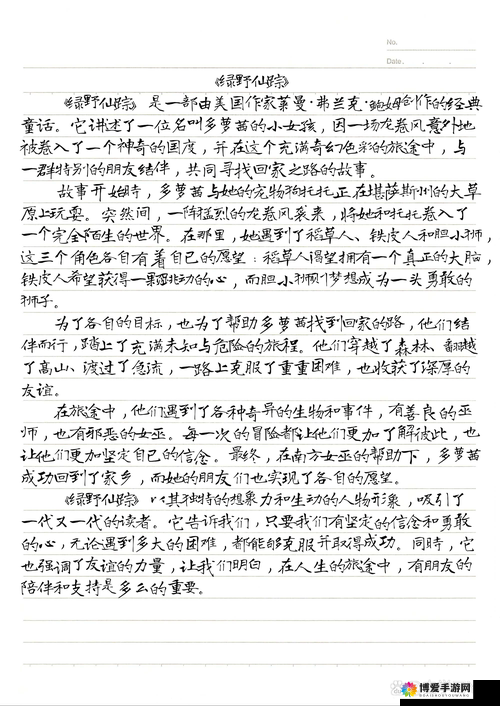 No.
Date
《绿野仙踪》
《绿野仙踪》是一部由美国作家莱曼·弗兰克·鲍姆创作的经典
童话。它讲述了一位名叫多萝茜的小女孩，因一场龙卷风意外地
被卷入了一个神奇的国度，并在这个充满奇幻色彩的旅途中，与
一群特别的朋友结伴，共同寻找回家之路的故事。
故事开始时，多萝茜与她的宠物狗托托正在堪萨斯州的大草
原上玩耍。突然间，一阵猛烈的龙卷风袭来，将她和托托卷入了
一个完全陌生的世界。在那里，她遇到了稻草人、铁皮人和胆小狮，
这三个角色各自有着自己的愿望：稻草人渴望拥有一个真正的大脑，
铁皮人希望获得一颗跳动的心，而胆小狮则梦想成为一头勇敢的
狮子。
为了各自的目标，也为了帮助多萝茜找到回家的路，他们结
伴而行，踏上了充满未知与危险的旅程。他们穿越了森林、翻越
了高山、渡过了急流，一路上克服了重重困难，也收获了深厚的
友谊。
在旅途中，他们遇到了各种奇异的生物和事件，有善良的巫
师，也有邪恶的女巫。每一次的冒险都让他们更加了解彼此，也
让他们更加坚定自己的信念。最终，在南方女巫的帮助下，多萝茜
成功回到了家乡，而她的朋友们也实现了各自的愿望。
《绿野仙踪》以其独特的想象力和生动的人物形象，吸引了
一代又一代的读者。它告诉我们，只要我们有坚定的信念和勇敢
的心，无论遇到多大的困难，都能够克服并取得成功。同时，它
也强调了友谊的力量，让我们明白，在人生的旅途中，有朋友的
陪伴和支持是多么的重要。
博爱手游网